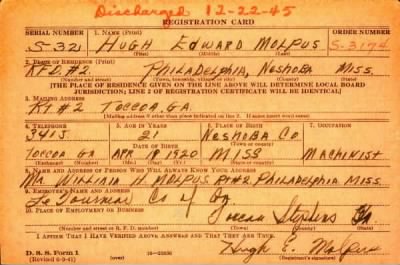 Discharged 12-22-45
REGISTRATION CARD
SERIAL NUMBER 1. NAME (Print) ORDER NUMBER (Print)
S-321 HUGH EDWARD MOLPUS S-3174
2. PLACE OF RESIDENCE (Print)
RFD.#2 PHILADELPHIA, NESHOBA MISS.
(Number and street) (Town, township, village, or city) (County) (State)
[THE PLACE OF RESIDENCE GIVEN ON THE LINE ABOVE WILL DETERMINE LOCAL BOARD
JURISDICTION; LINE 2 OF REGISTRATION CERTIFICATE WILL BE IDENTICAL]
3. MAILING ADDRESS
RT #2 TOCCOA, GA.
[Mailing address if other than place indicated on line 2. If same insert word same]
4. TELEPHONE 5. AGE IN YEARS 6. PLACE OF BIRTH 7. OCCUPATION
3415 21 NESHOBA CO
DATE OF BIRTH (Town or county)
TOCCOA GA APR 1920 MISS MACHINIST
(State or country)
8. NAME AND ADDRESS OF PERSON WHO WILL ALWAYS KNOW YOUR ADDRESS
MR WILLIAM H. MOLPUS RT#2 PHILADELPHIA MISS.
9. EMPLOYER'S NAME AND ADDRESS
Le Tourneau Co of Ga.
10. PLACE OF EMPLOYMENT OR BUSINESS
Toccoa Stephens Ga
(Number and street or R. F. D. number) (Town) (County) (State)
I AFFIRM THAT I HAVE VERIFIED ABOVE ANSWERS AND THAT THEY ARE TRUE.
D. S. S. Form 1
Hugh E. Molpus